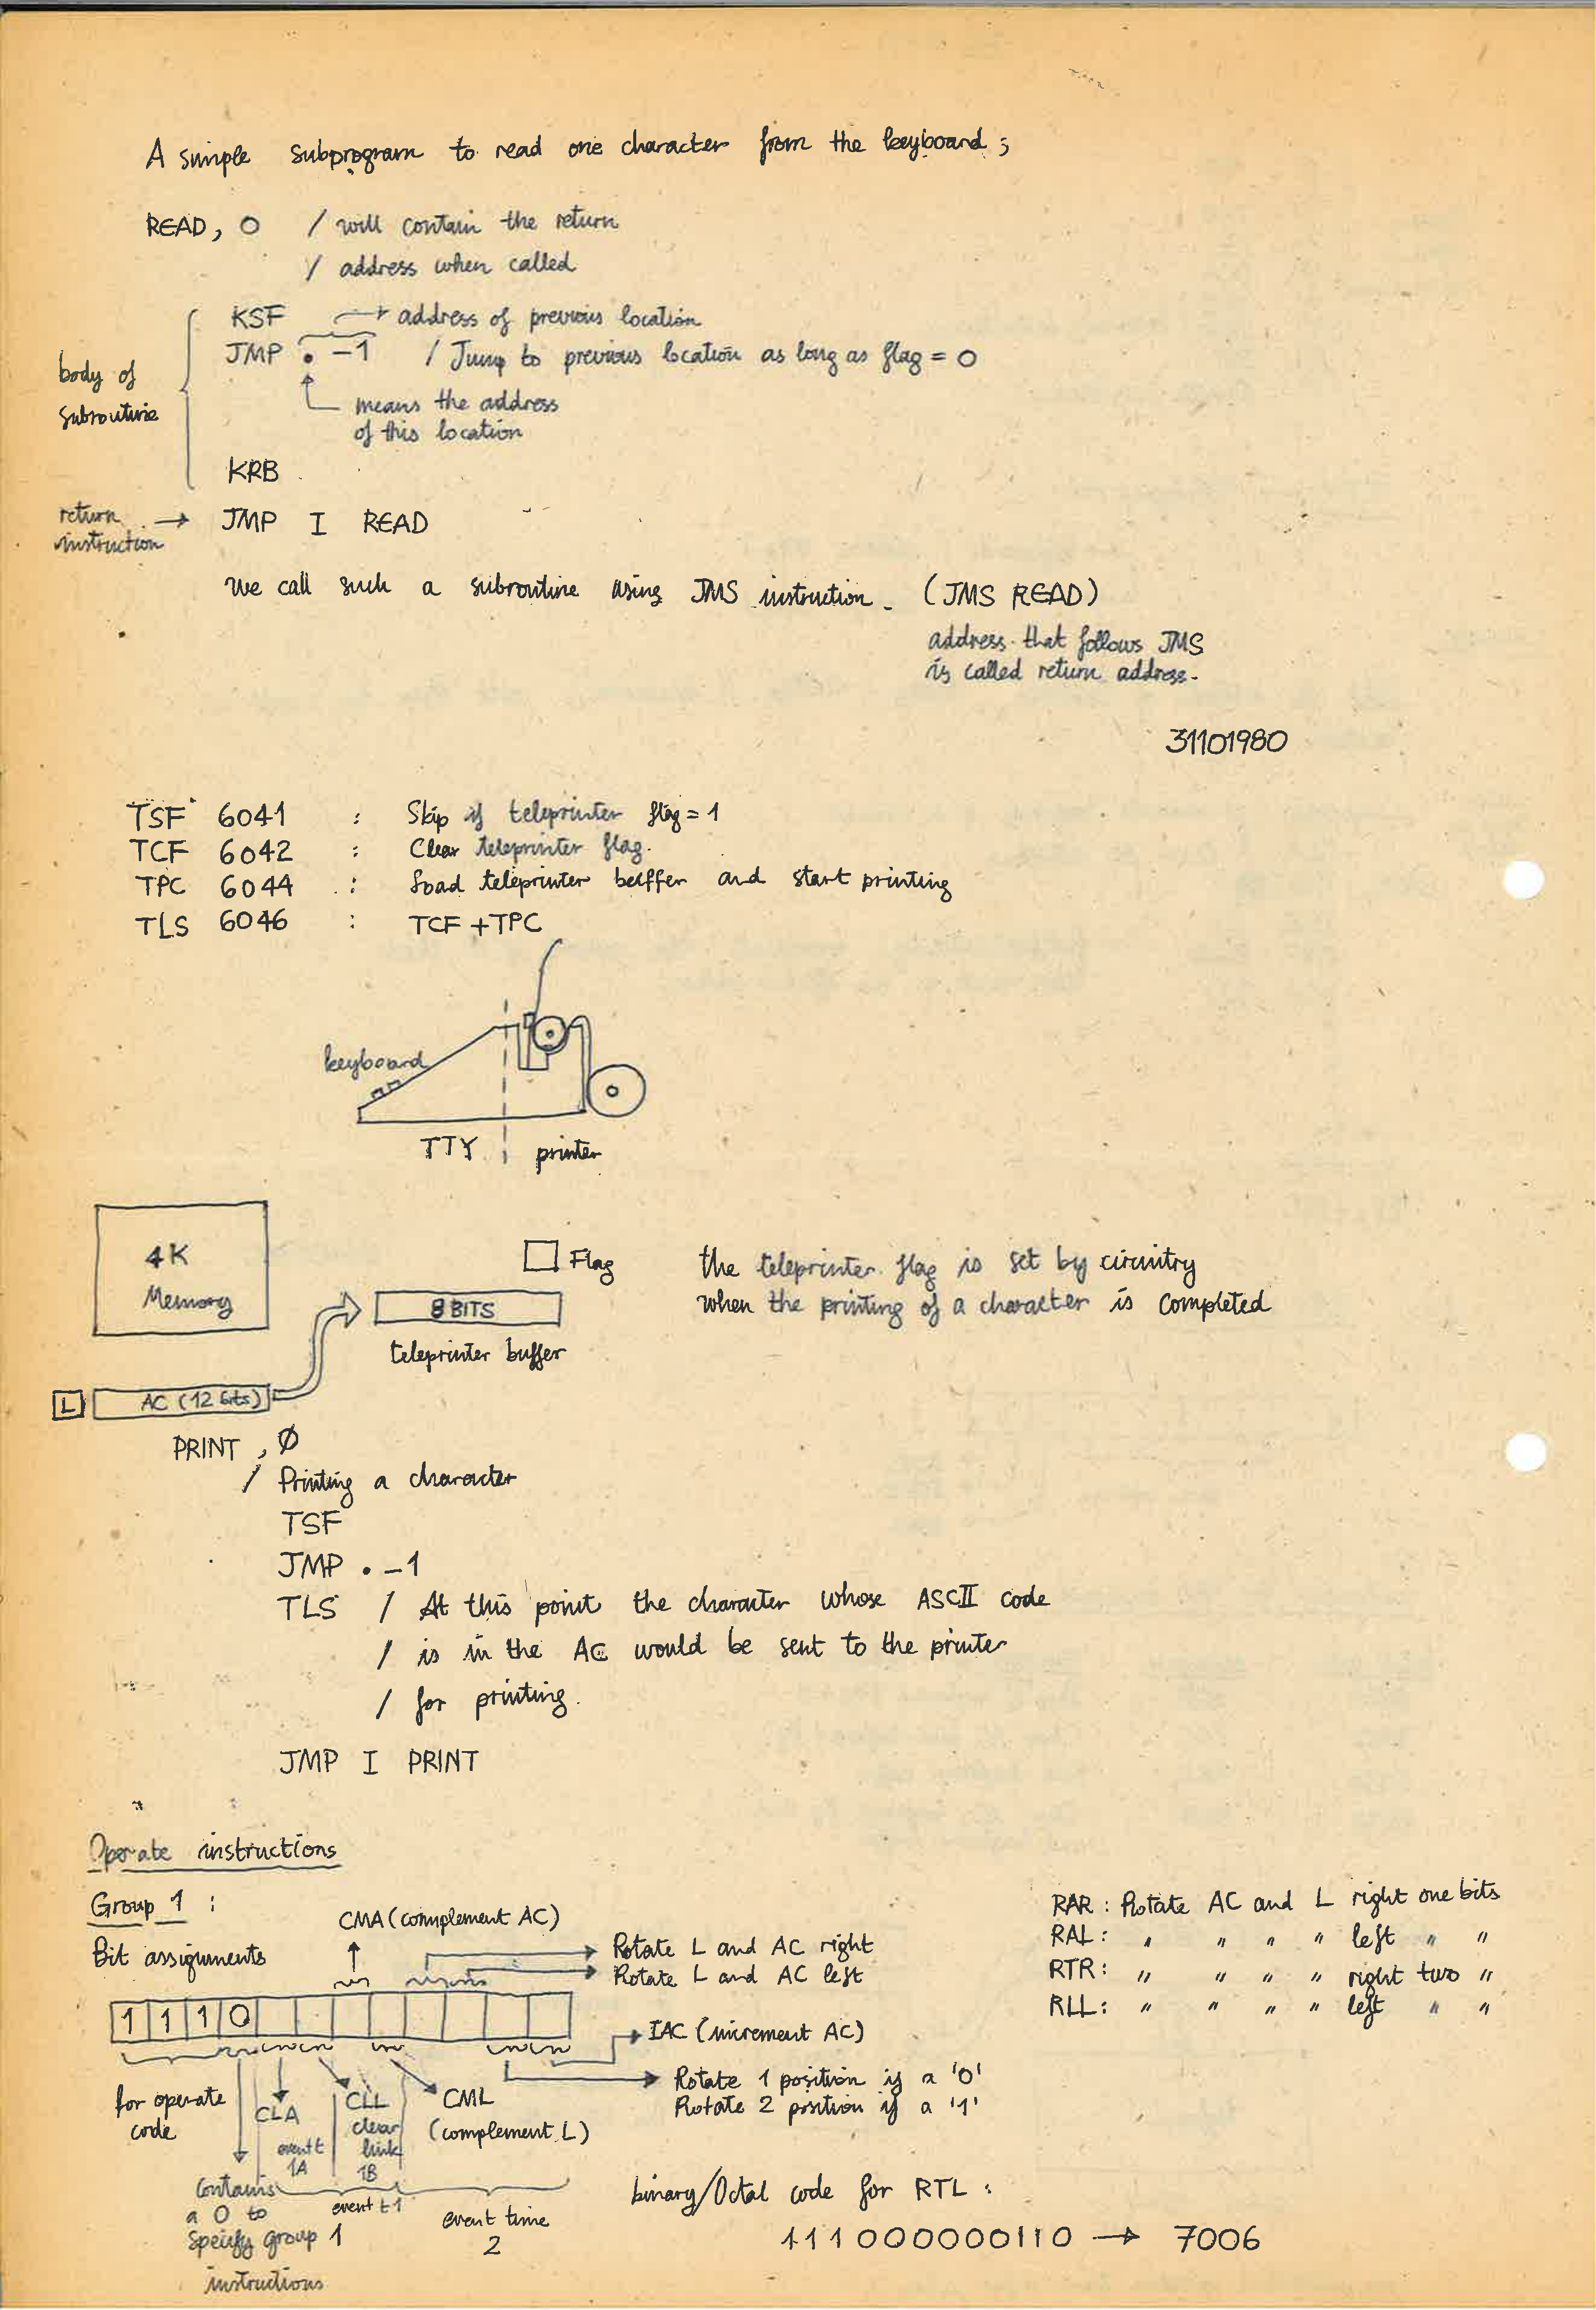 A simple subprogram to read one character from the keyboard ;
READ, 0 / will contain the return
/ address when called
KSF → address of previous location
JMP . -1 / Jump to previous location as long as flag = 0
means the address
of this location
body of
subroutine
KRB
return → JMP I READ
instruction
We call such a subroutine using JMS instruction. (JMS READ)
address that follows JMS
is called return address.
31101980
TSF 6041 : Skip if teleprinter flag = 1
TCF 6042 : Clear teleprinter flag.
TPC 6044 : Load teleprinter buffer and start printing
TLS 6046 : TCF + TPC
keyboard
TTY printer
4K
Memory
Flag
8 BITS
teleprinter buffer
the teleprinter flag is set by circuitry
when the printing of a character is completed
L AC (12 bits)
PRINT , Ø
/ Printing a character
TSF
JMP . -1
TLS / At this point the character whose ASCII code
/ is in the AC would be sent to the printer
/ for printing.
JMP I PRINT
Operate instructions
Group 1 :
Bit assignments
CMA (complement AC)
→ Rotate L and AC right
→ Rotate L and AC left
1 1 1 0
→ IAC (increment AC)
→ Rotate 1 position if a '0'
Rotate 2 position if a '1'
for operate
code
CLA
event t
1A
CLL
clear
link
1B
CML
(complement L)
Contains
a 0 to
specify group 1
instructions
event t1
event time
2
RAR : Rotate AC and L right one bits
RAL : " " " " left " "
RTR : " " " " right two "
RLL : " " " " left " "
binary/Octal code for RTL :
111000000110 → 7006